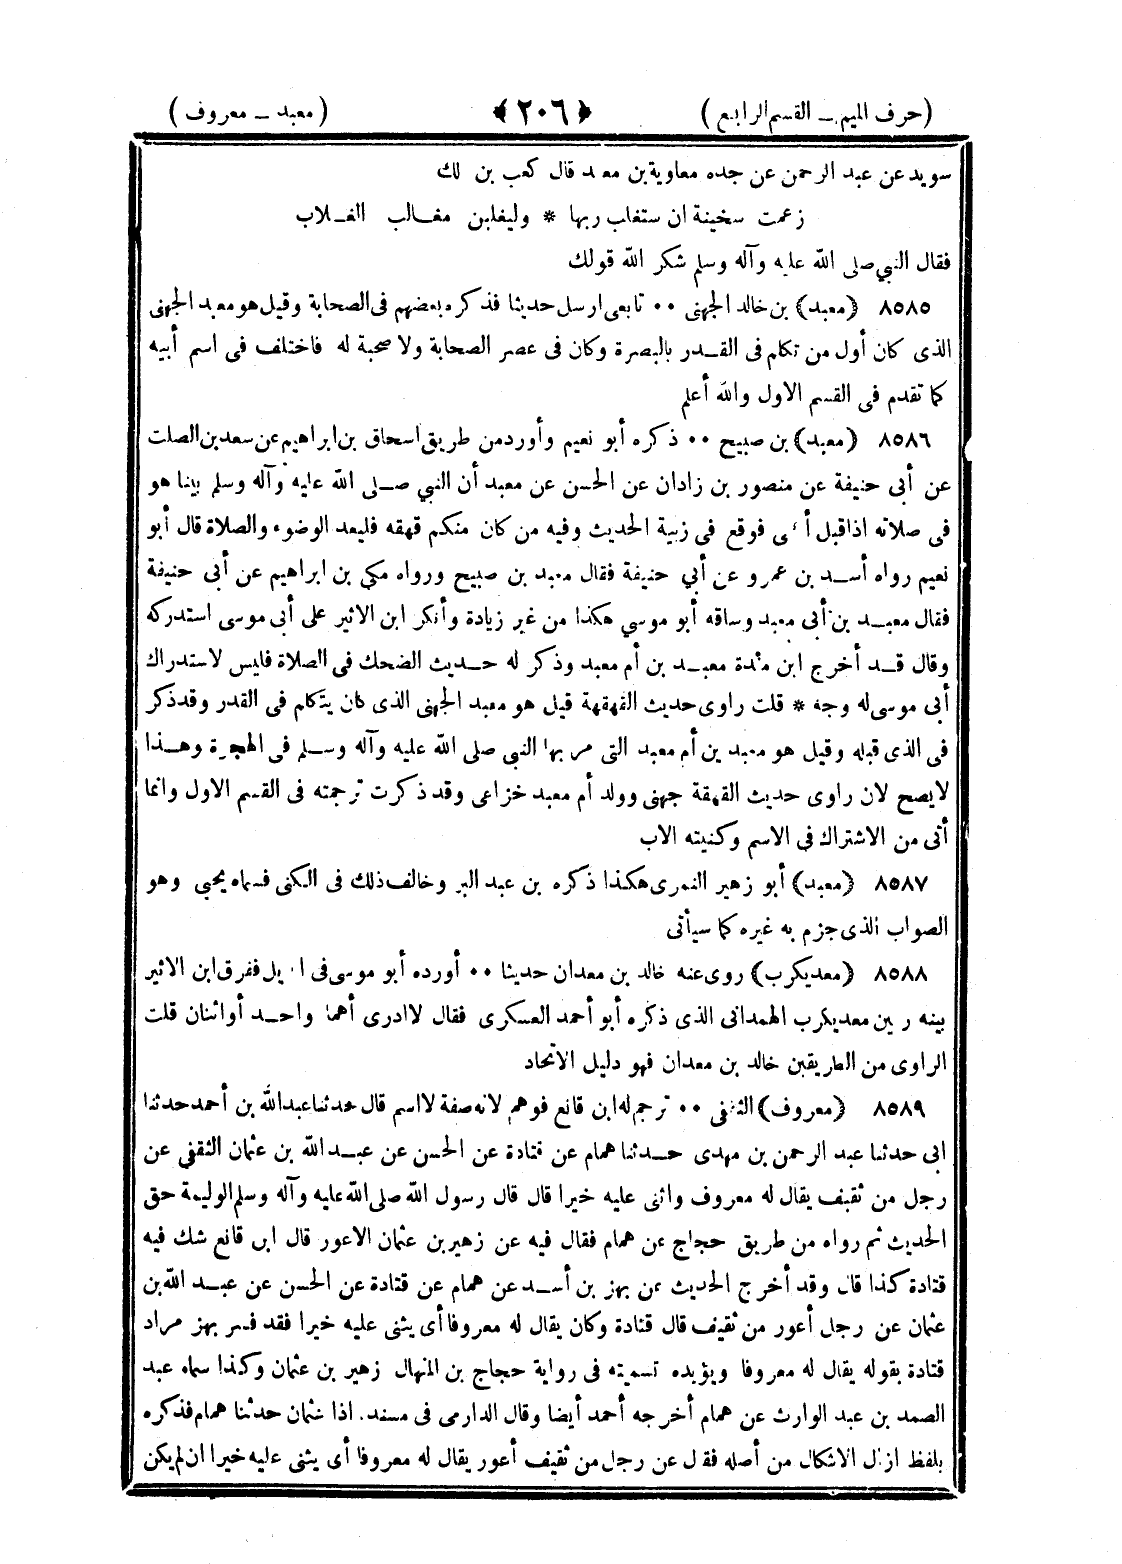 (حرف الميم ـ القسم الرابع) ﴿٢٠٦﴾ (معبد ـ معروف)
سويد عن عبد الرحمن عن جده معاوية بن معبد قال كعب بن لك
زعمت سخينة ان ستغلب ربها * وليغلبن مغالب الغلاب
فقال النبي صلى الله عليه وآله وسلم شكر الله قولك
٨٥٨٥ (معبد) بن خالد الجهنى ٠٠ تابعى ارسل حديثا فذكره بعضهم فى الصحابة وقيل هو معبد الجهنى
الذى كان أول من تكلم فى القدر بالبصرة وكان فى عصر الصحابة ولا صحبة له فاختلف فى اسم أبيه
كما تقدم فى القسم الاول والله أعلم
٨٥٨٦ (معبد) بن صبيح ٠٠ ذكره أبو نعيم وأورد من طريق اسحاق بن ابراهيم عن سعد بن الصلت
عن أبى حنيفة عن منصور بن زاذان عن الحسن عن معبد أن النبي صلى الله عليه وآله وسلم بينا هو
فى صلاته اذ اقبل أ ى فوقع فى زبية الحديث وفيه من كان منكم قهقه فليعد الوضوء والصلاة قال أبو
نعيم رواه أسد بن عمرو عن أبي حنيفة فقال معبد بن صبيح ورواه مكى بن ابراهيم عن أبى حنيفة
فقال معبد بن أبى معبد وساقه أبو موسي هكذا من غير زيادة وأنكر ابن الاثير على أبى موسى استدركه
وقال قد أخرج ابن مندة معبد بن أم معبد وذكر له حديث الضحك فى الصلاة فليس لاستدراك
أبى موسى له وجه * قلت راوى حديث القهقهة قيل هو معبد الجهنى الذى كان يتكلم فى القدر وقد ذكر
فى الذى قبله وقيل هو معبد بن أم معبد التى مر بها النبي صلى الله عليه وآله وسلم فى الهجرة وهذا
لا يصح لان راوى حديث القهقهة جهنى وولد أم معبد خزاعى وقد ذكرت ترجمته فى القسم الاول وانما
أتى من الاشتراك فى الاسم وكنيته الاب
٨٥٨٧ (معبد) أبو زهير النمرى هكذا ذكره بن عبد البر وخالف ذلك فى الكنى فسماه يحيى وهو
الصواب الذى جزم به غيره كما سيأتى
٨٥٨٨ (معديكرب) روى عنه خالد بن معدان حديثا ٠٠ أورده أبو موسى فى ا يل ففرق ابن الاثير
بينه ر ين معديكرب الهمدانى الذى ذكره أبو أحمد العسكرى فقال لا ادرى أهما واحد أو اثنان قلت
الراوى من الطريقين خالد بن معدان فهو دليل الاتحاد
٨٥٨٩ (معروف) الثقفى ٠٠ ترجم له ابن قانع فوهم لانه صفة لا اسم قال حدثنا عبد الله بن أحمد حدثنا
ابى حدثنا عبد الرحمن بن مهدى حدثنا همام عن قتادة عن الحسن عن عبد الله بن عثمان الثقفى عن
رجل من ثقيف يقال له معروف واثنى عليه خيرا قال قال رسول الله صلى الله عليه وآله وسلم الوليمة حق
الحديث ثم رواه من طريق حجاج عن همام فقال فيه عن زهير بن عثمان الاعور قال ابن قانع شك فيه
قتادة كذا قال وقد أخرج الحديث عن بهز بن أسد عن همام عن قتادة عن الحسن عن عبد الله بن
عثمان عن رجل أعور من ثقيف قال قتادة وكان يقال له معروفا أى يثنى عليه خيرا فقد فسر بهز مراد
قتادة بقوله يقال له معروفا ويؤيده تسميته فى رواية حجاج بن المنهال زهير بن عثمان وكذا سماه عبد
الصمد بن عبد الوارث عن همام أخرجه أحمد أيضا وقال الدارمى فى مسنده اذا عثمان حدثنا همام فذكره
بلفظ ازال الاشكال من أصله فقال عن رجل من ثقيف أعور يقال له معروفا أى يثنى عليه خيرا ان لم يكن